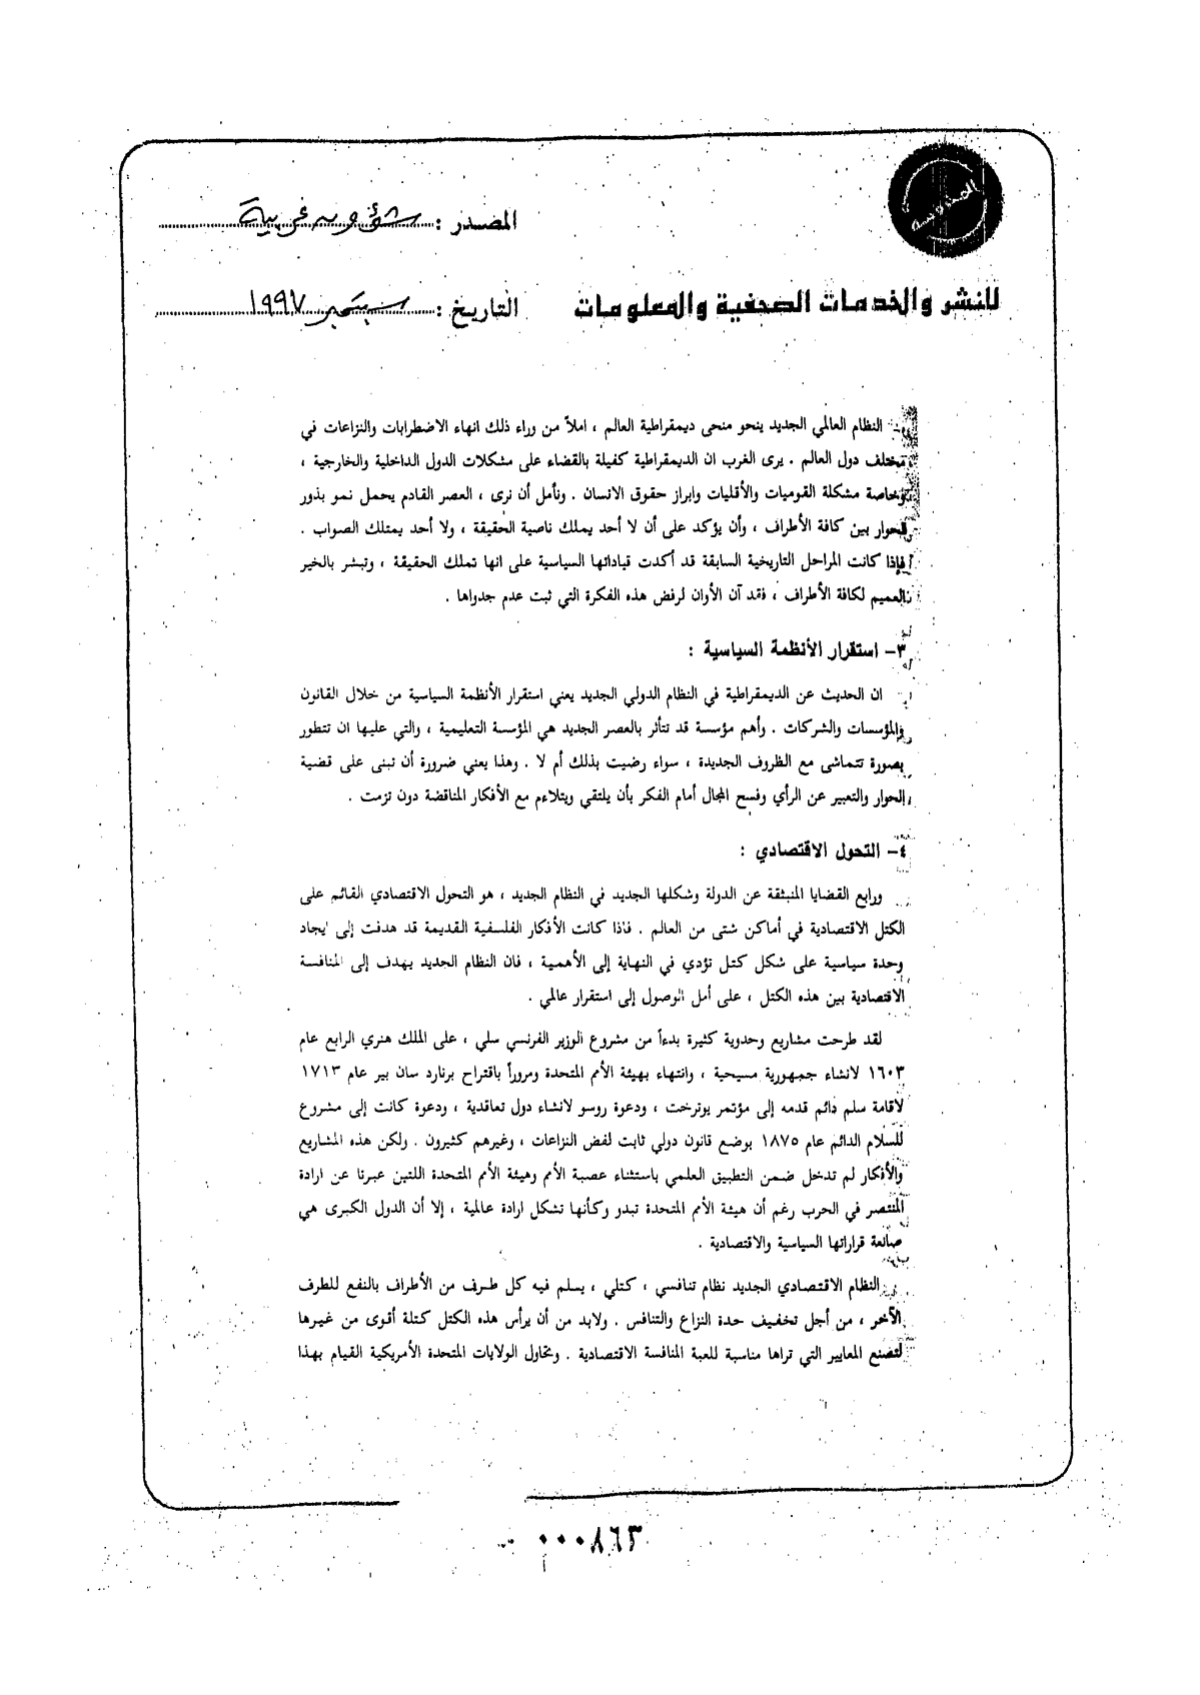 المصدر : شؤون عربية
للنشر والخدمات الصحفية والمعلومات
التاريخ : سبتمبر ١٩٩٧
النظام العالمي الجديد ينحو منحى ديمقراطية العالم ، املاً من وراء ذلك انهاء الاضطرابات والنزاعات في
مختلف دول العالم . يرى الغرب ان الديمقراطية كفيلة بالقضاء على مشكلات الدول الداخلية والخارجية ،
وبخاصة مشكلة القوميات والأقليات وابراز حقوق الانسان . ونأمل أن نرى ، العصر القادم يحمل نمو بذور
الحوار بين كافة الأطراف ، وأن يؤكد على أن لا أحد يملك ناصية الحقيقة ، ولا أحد يمتلك الصواب .
فإذا كانت المراحل التاريخية السابقة قد أكدت قياداتها السياسية على انها تملك الحقيقة ، وتبشر بالخير
العميم لكافة الأطراف ، فقد آن الأوان لرفض هذه الفكرة التي ثبت عدم جدواها .
٣- استقرار الأنظمة السياسية :
ان الحديث عن الديمقراطية في النظام الدولي الجديد يعني استقرار الأنظمة السياسية من خلال القانون
والمؤسسات والشركات . وأهم مؤسسة قد تتأثر بالعصر الجديد هي المؤسسة التعليمية ، والتي عليها ان تتطور
بصورة تتماشى مع الظروف الجديدة ، سواء رضيت بذلك أم لا . وهذا يعني ضرورة أن تبنى على قضية
الحوار والتعبير عن الرأي وفسح المجال أمام الفكر بأن يلتقي ويتلاءم مع الأفكار المناقضة دون تزمت .
٤- التحول الاقتصادي :
ورابع القضايا المنبثقة عن الدولة وشكلها الجديد في النظام الجديد ، هو التحول الاقتصادي القائم على
الكتل الاقتصادية في أماكن شتى من العالم . فاذا كانت الأفكار الفلسفية القديمة قد هدفت إلى ايجاد
وحدة سياسية على شكل كتل تؤدي في النهاية إلى الأهمية ، فان النظام الجديد يهدف إلى المنافسة
الاقتصادية بين هذه الكتل ، على أمل الوصول إلى استقرار عالمي .
لقد طرحت مشاريع وحدوية كثيرة بدءاً من مشروع الوزير الفرنسي سلي ، على الملك هنري الرابع عام
١٦٠٣ لانشاء جمهورية مسيحية ، وانتهاء بهيئة الأمم المتحدة ومروراً باقتراح برنارد سان بير عام ١٧١٣
لاقامة سلم دائم قدمه إلى مؤتمر يوترخت ، ودعوة روسو لانشاء دول تعاقدية ، ودعوة كانت إلى مشروع
للسلام الدائم عام ١٨٧٥ بوضع قانون دولي ثابت لفض النزاعات ، وغيرهم كثيرون . ولكن هذه المشاريع
والأفكار لم تدخل ضمن التطبيق العلمي باستثناء عصبة الأمم وهيئة الأمم المتحدة اللتين عبرتا عن ارادة
المنتصر في الحرب رغم أن هيئة الأمم المتحدة تبدو وكأنها تشكل ارادة عالمية ، إلا أن الدول الكبرى هي
صانعة قراراتها السياسية والاقتصادية .
النظام الاقتصادي الجديد نظام تنافسي ، كتلي ، يسلم فيه كل طرف من الأطراف بالنفع للطرف
الآخر ، من أجل تخفيف حدة النزاع والتنافس . ولابد من أن يرأس هذه الكتل كتلة أقوى من غيرها
لتصنع المعايير التي تراها مناسبة للعبة المنافسة الاقتصادية . وتحاول الولايات المتحدة الأمريكية القيام بهذا
٠٠٠٨٦٣